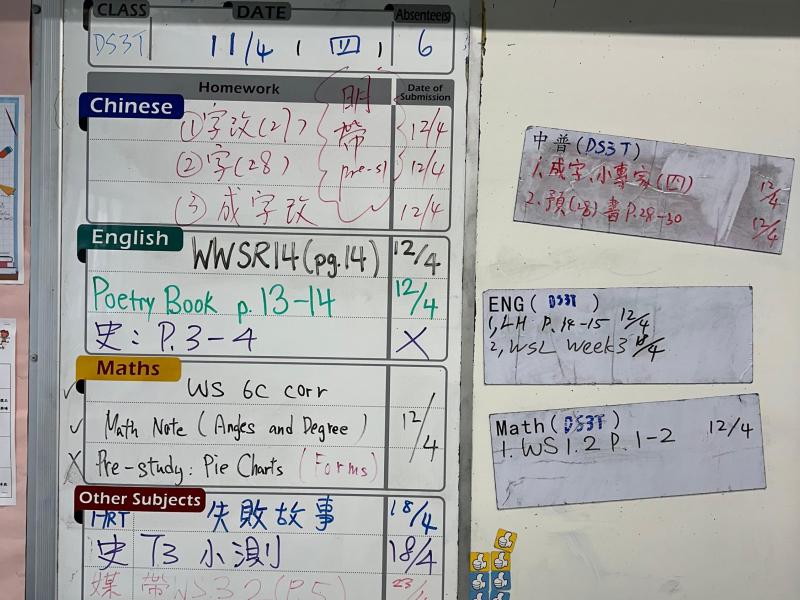 CLASS DATE Absentee(s)
DS3T 11/4 (四) 6
Homework Date of Submission
Chinese
①字改(27) 12/4
②字(28) 12/4
③成字改 12/4
明
帶
pre-s1
English
WWSR14(pg.14) 12/4
Poetry Book p. 13-14 12/4
史: P.3-4 X
Maths
✓ WS 6C corr
✓ Math Note (Angles and Degree) 12/4
X Pre-study: Pie Charts (Forms)
Other Subjects
HRT 失敗故事 18/4
史 T3 小測 18/4
媒 帶 WS3.2 (P.5)
中普(DS3T)
1. 成字、小專家(四) 12/4
2. 預(28) 書P.28-30 12/4
ENG( DS3T )
1, LH P.14-15 12/4
2, WSL Week3
Math(DS3T)
1. WS 1.2 P. 1-2 12/4